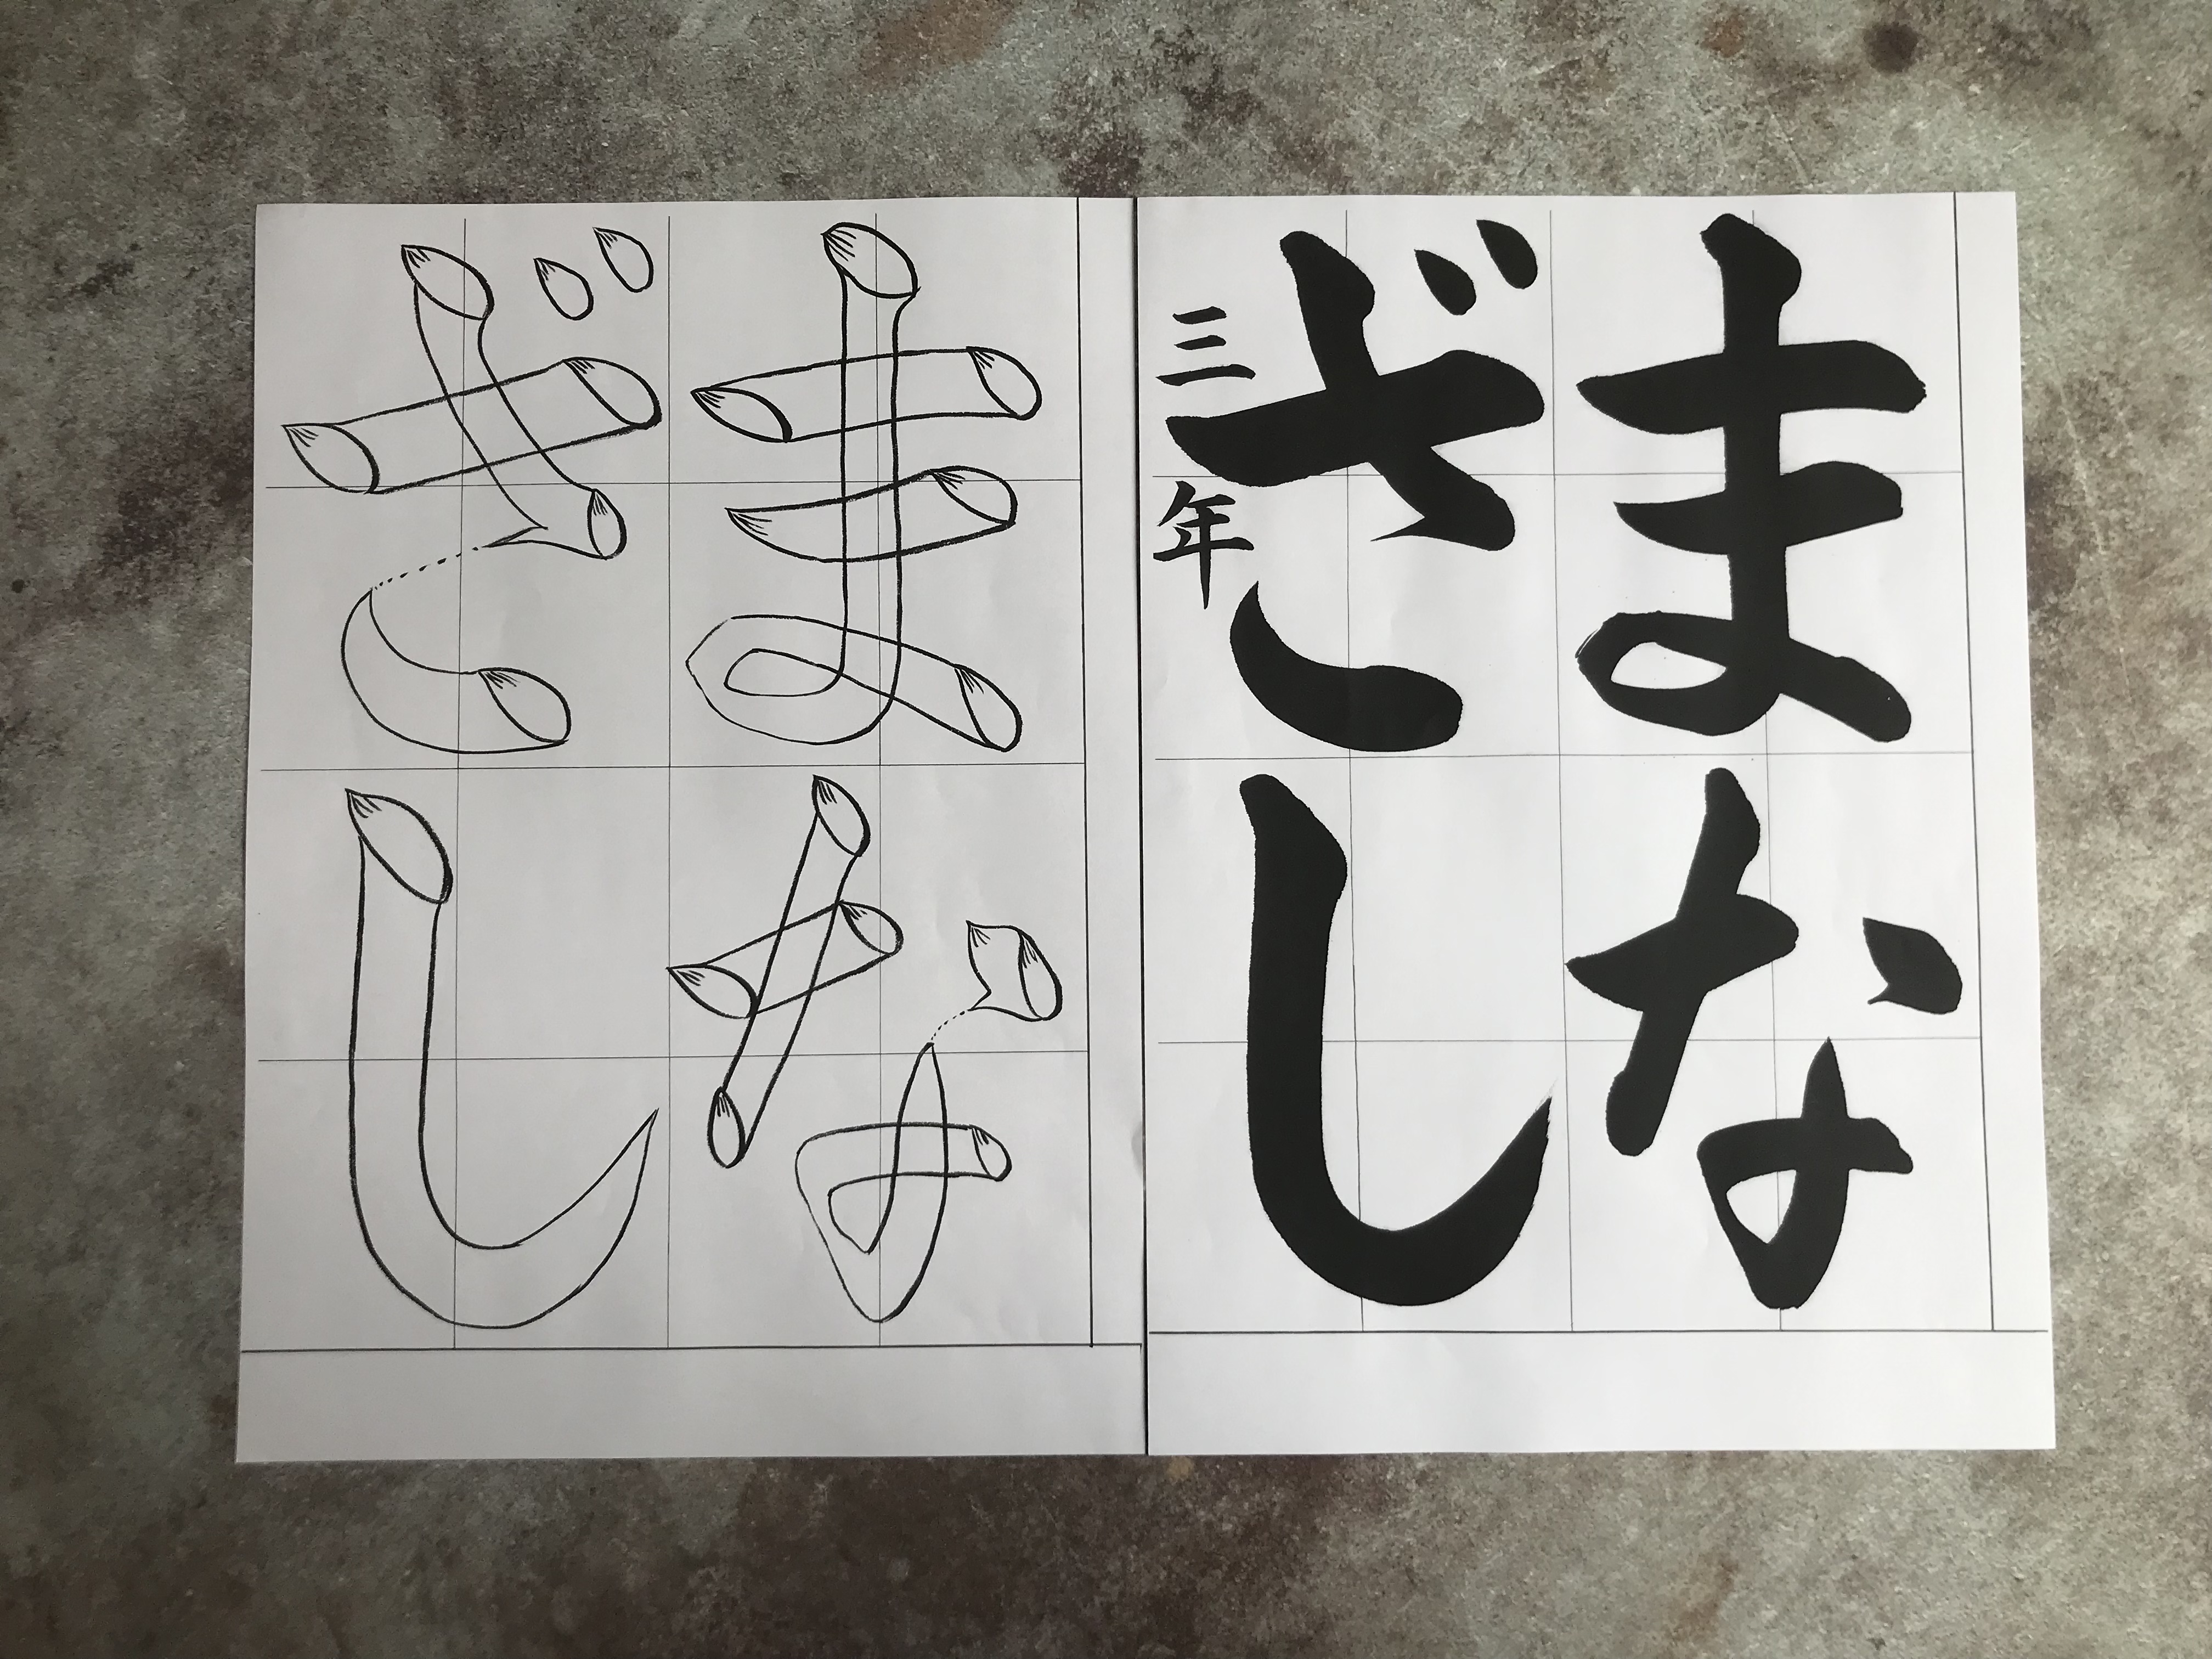 まな
ざし
三年
まな
ざし